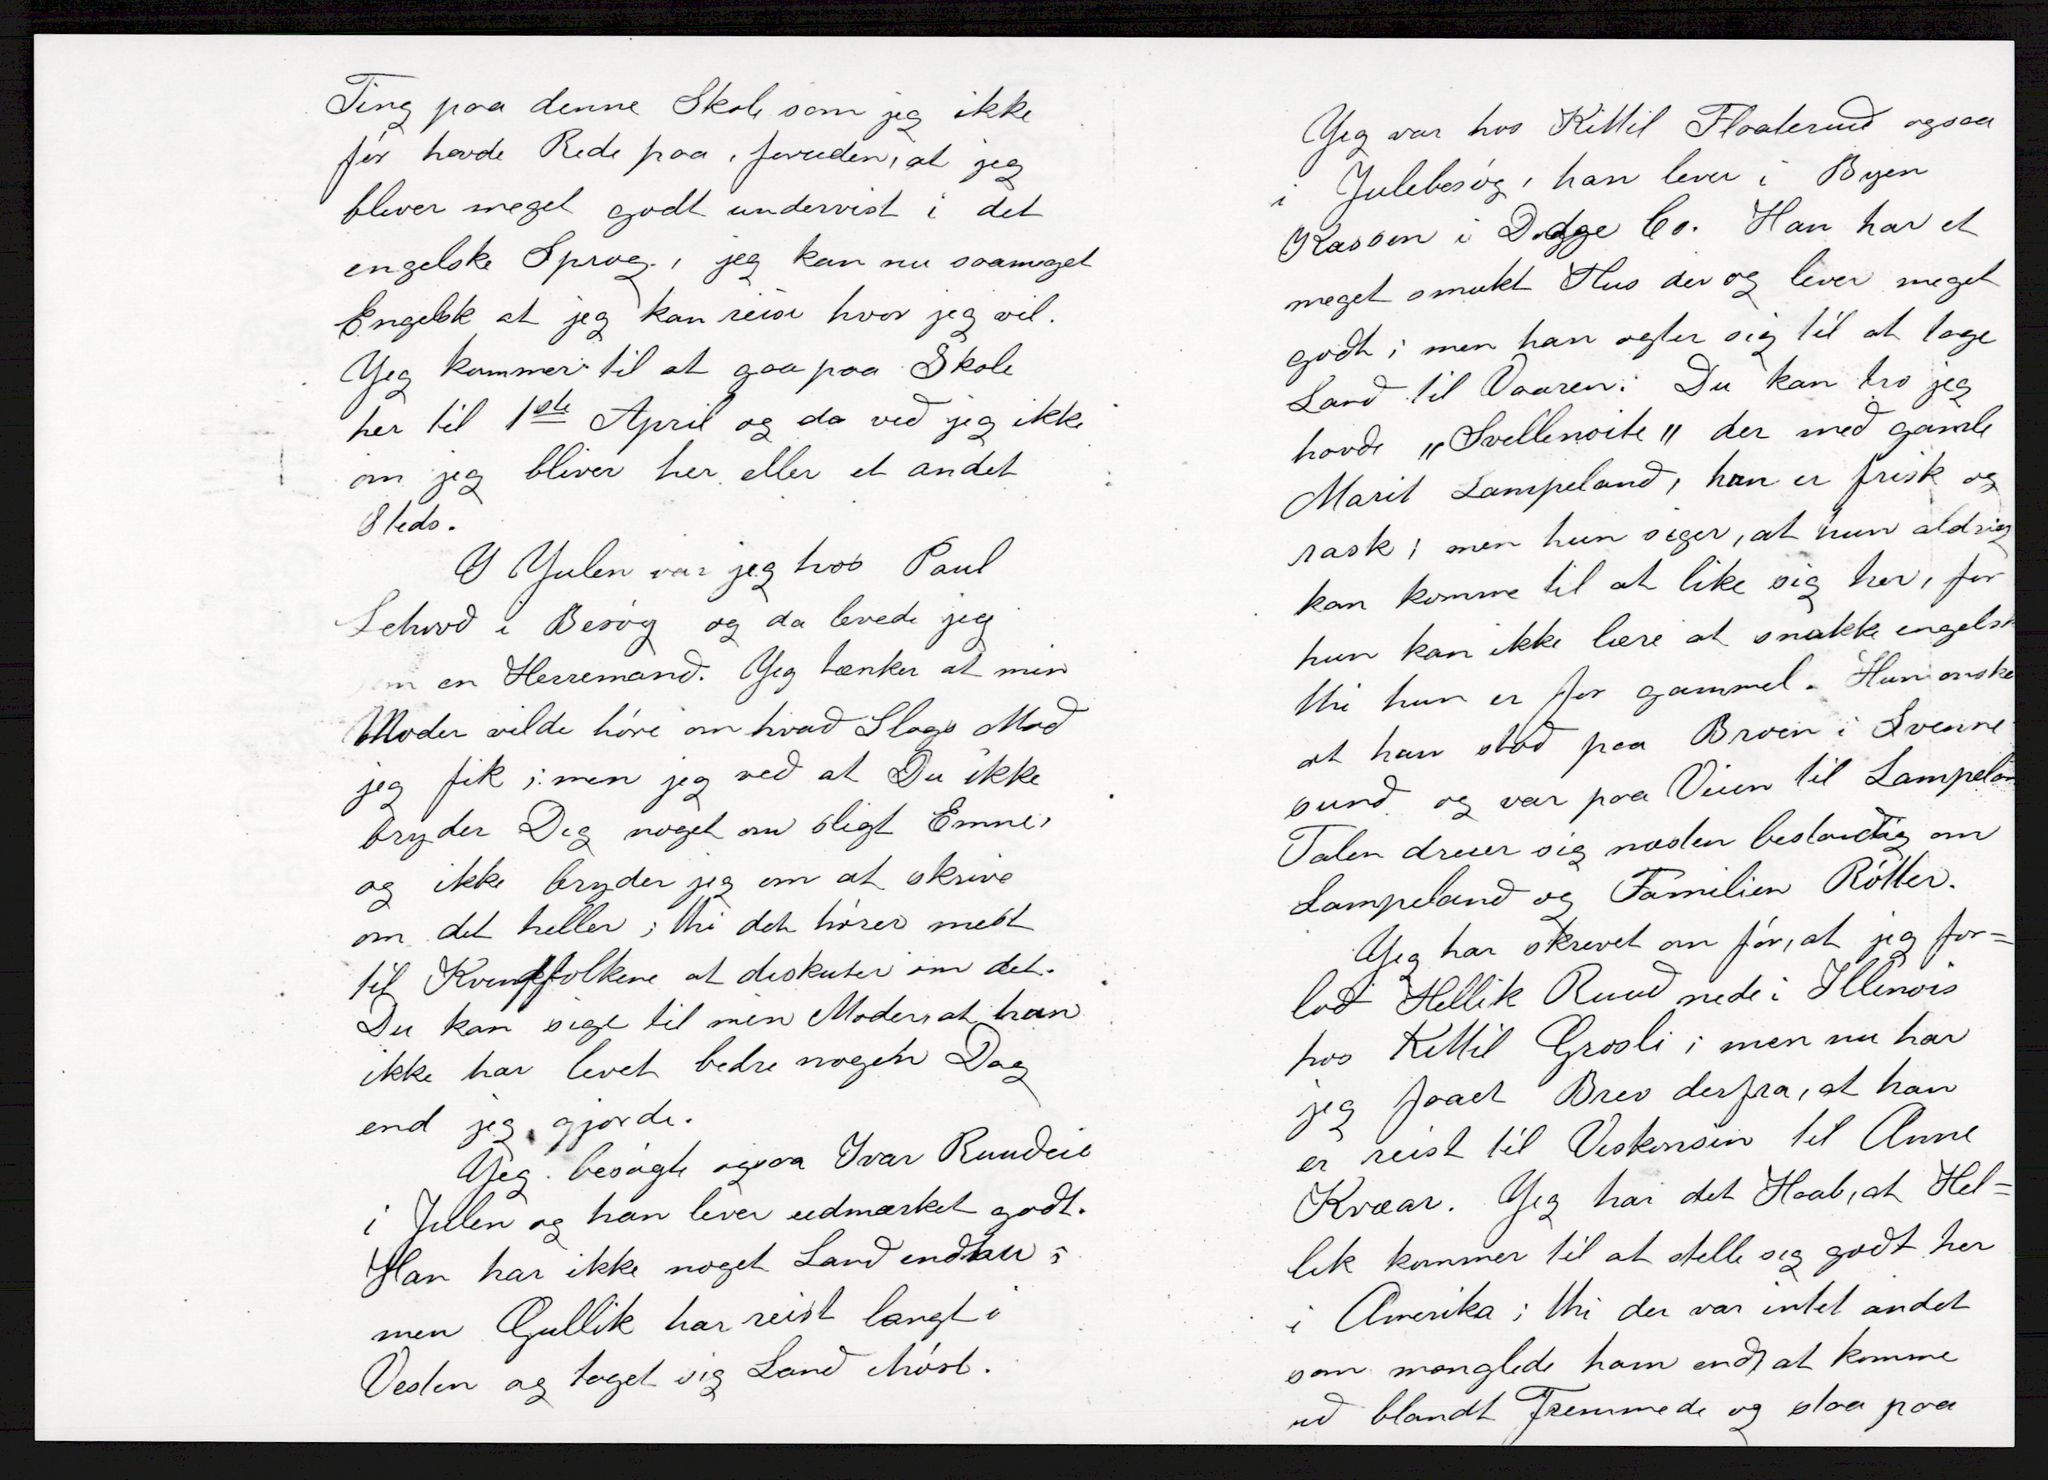 Ting paa denne Skole som jeg ikke
før havde Rede paa, foruden, at jeg
bliver meget godt undervist i det
engelske Sprog, jeg kan nu saameget
Engelsk at jeg kan reise hvor jeg vil.
Jeg kommer til at gaa paa Skole
her til 1ste April og da ved jeg ikke
om jeg bliver her eller et andet
Steds.
I Julen var jeg hos Paul
i Besøg og da levede jeg
som en Herremand. Jeg tænker at min
Moder vilde høre om hvad Slags Mad
jeg fik; men jeg ved at Du ikke
bryder Dig noget om sligt Emne,
og ikke bryder jeg om at skrive
om det heller; thi det hører mest
til Kvindfolkene at diskuter om det.
Du kan sige til min Moder, at hun
ikke har levet bedre nogen Dag
end jeg gjorde.
Jeg besøgte ogsaa Ivar Ruudeie
i Julen og han lever udmærket godt.
Han har ikke noget Land endnu;
men Gullik har reist langt i
Vesten og taget sig Land ihøst.
Jeg var hos Kittil Flaaterud ogsaa
i Julebesøg, han lever i Byen
Kasson i Dodge Co. Han har et
meget smukt Hus der og lever meget
godt; men han agter sig til at tage
Land til Vaaren. Du kan tro jeg
havde "Svellenoite" der med gamle
Marit Lampeland, hun er frisk og
rask; men hun siger, at hun aldrig
kan komme til at like sig her, for
hun kan ikke lære at snakke engelsk
thi hun er for gammel. Hun ønske
at hun stod paa Broen i Svenne
sund og var paa Veien til Lampelan
Talen dreier sig næsten bestandig om
Lampeland og Familien Røtter.
Jeg har skrevet om før, at jeg for=
lod Hellik Ruud nede i Illinois
hos Kittil Grosli; men nu har
jeg faaet Brev derfra, at han
er reist til Viskonsin til Anne
Kvæar. Jeg har det Haab, at Hel=
lik kommer til at stelle sig godt her
i Amerika; thi der var intet andet
som manglede ham end at komme
ud blandt Fremmede og staa paa